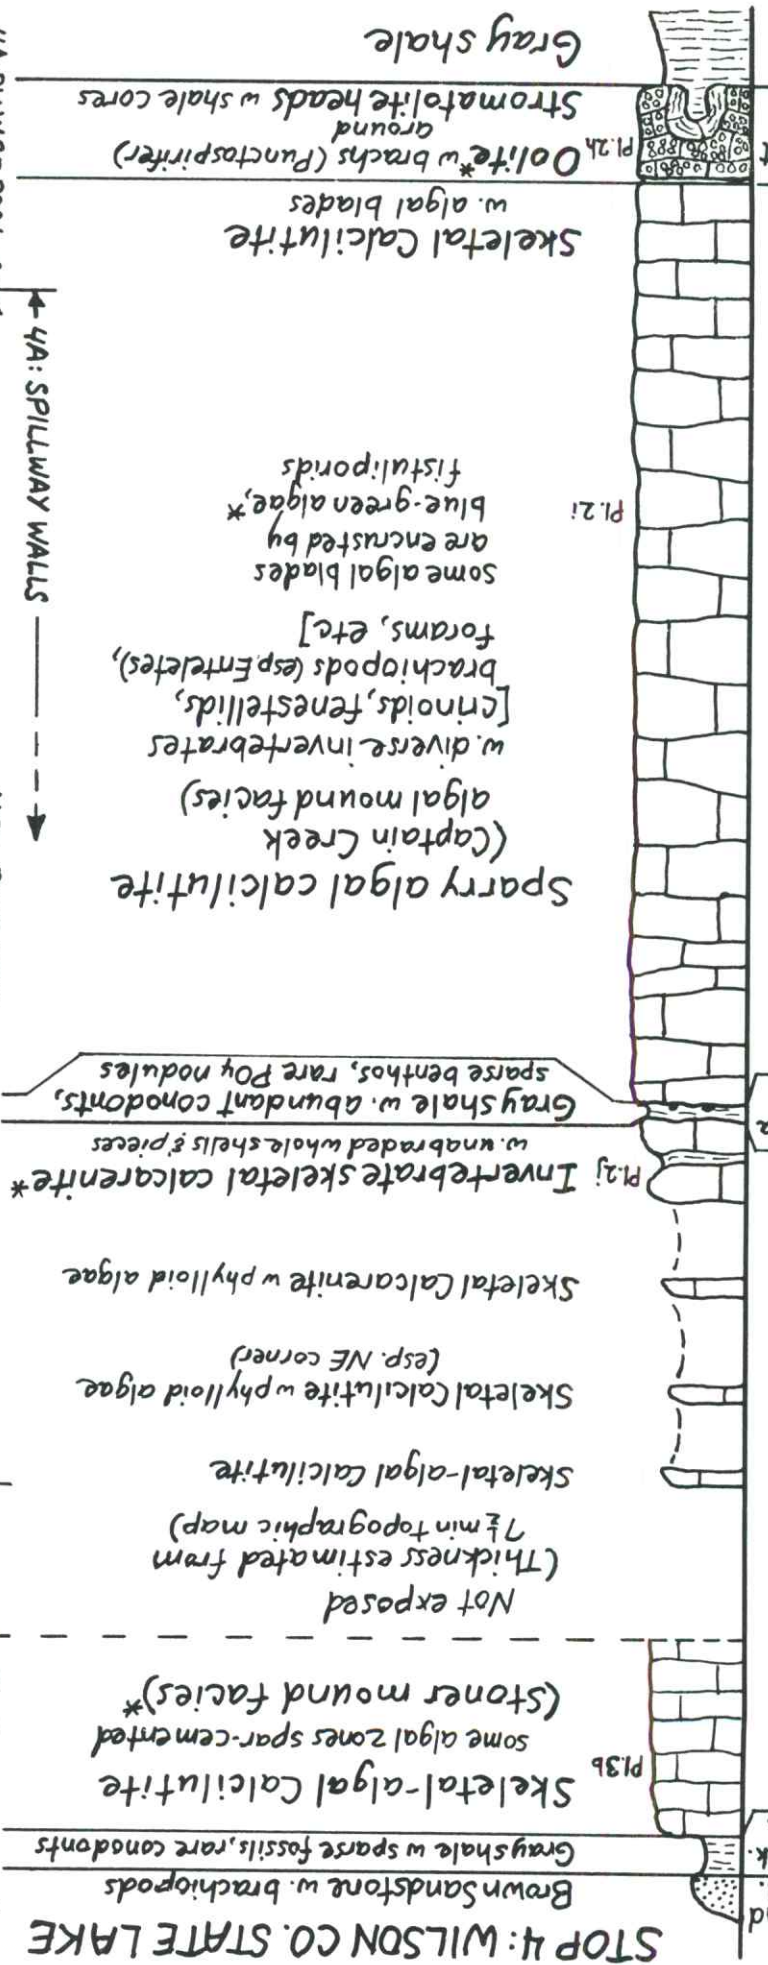 STOP 4: WILSON CO. STATE LAKE
Brown Sandstone w. brachiopods
Gray shale w sparse fossils, rare conodonts
Pl.3b
Skeletal-algal Calcilutite
some algal zones spar-cemented
(Stoner mound facies)*
Not exposed
(Thickness estimated from
7½ min topographic map)
Skeletal-algal Calcilutite
Skeletal Calcilutite w phylloid algae
(esp. NE corner)
Skeletal Calcarenite w phylloid algae
Pl.2j
Invertebrate skeletal calcarenite*
w. unabraded whole shells & pieces
Gray shale w. abundant conodonts,
sparse benthos, rare PO4 nodules
Sparry algal calcilutite
(Captain Creek
algal mound facies)
w. diverse invertebrates
[crinoids, fenestellids,
brachiopods (esp. Enteletes),
forams, etc]
some algal blades
are encrusted by
blue-green algae,*
fistuliporids
Pl.2i
4A: SPILLWAY WALLS
Skeletal Calcilutite
w. algal blades
Pl.2h
Oolite* w brachs (Punctospirifer)
around
Stromatolite heads w shale cores
Gray shale